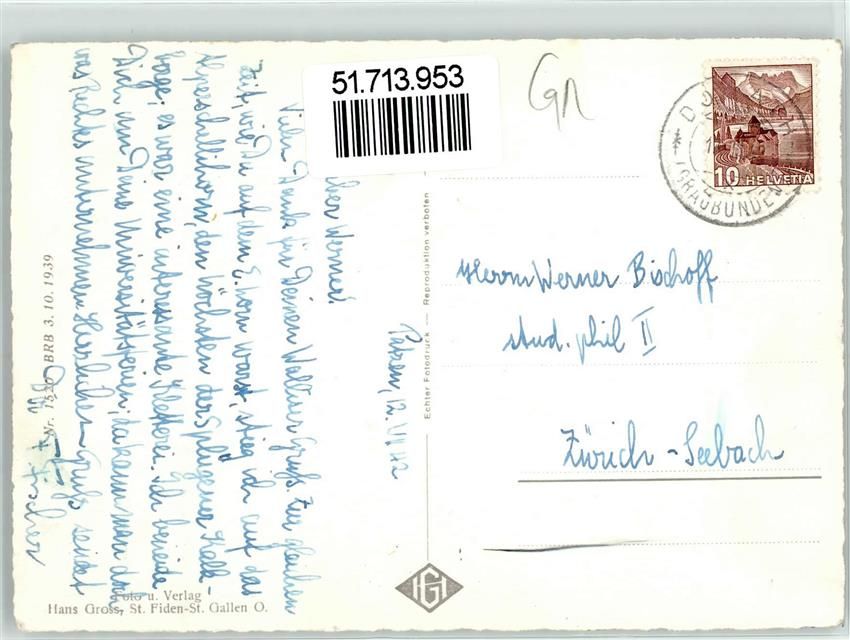 51.713.953
Gr
10 HELVETIA
(GRAUBÜNDEN)
Patzen, 12. VII 42
Lieber Werner!
Vielen Dank für Deinen Walliser Gruß. Zur gleichen
Zeit, wie Du auf dem E.horn warst, stieg ich auf das
Alperschellihorn, den höchsten der Splügener Kalk-
berge; es war eine interessante Kletterei. Ich beneide
Dich um Dine Universitätsferien; da kann man doch
was Rechts unternehmen. Herzlichen Gruß seitdet
Herrn Werner Bischoff
stud. phil II
Zürich-Seebach
Echter Fotodruck — Reproduktion verboten
Nr. 1520 BRB 3. 10. 1939
Foto u. Verlag
Hans Gross, St. Fiden-St. Gallen O.
HG